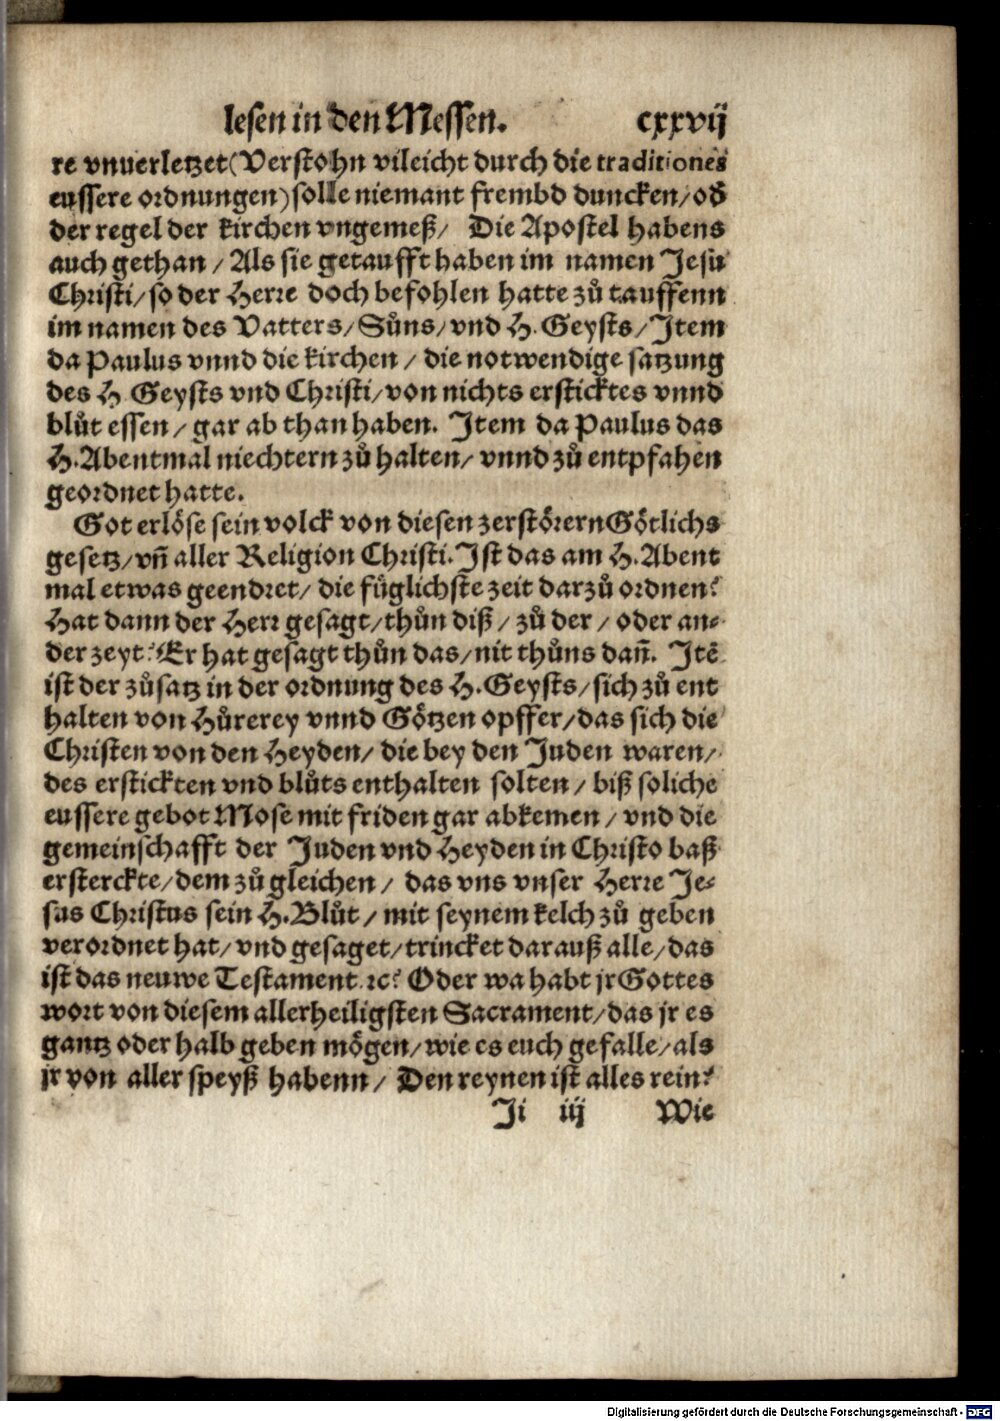 lesen in den Messen. cxxvij
re vnuerletzet(Verstohn vileicht durch die traditiones
eussere ordnungen)solle niemant frembd duncken/od̃
der regel der kirchen vngemeß/ Die Apostel habens
auch gethan/Als sie getaufft haben im namen Jesu
Christi/so der Herre doch befohlen hatte zů tauffenn
im namen des Vatters/Sůns/vnd H. Geysts/Jtem
da Paulus vnnd die kirchen/die notwendige satzung
des H Geysts vnd Christi/von nichts ersticktes vnnd
blůt essen/gar ab than haben. Jtem da Paulus das
H.Abentmal niechtern zů halten/vnnd zů entpfahen
geordnet hatte.
Got erlöse sein volck von diesen zerstörern Götlichs
gesetz/vñ aller Religion Christi. Jst das am H.Abent
mal etwas geendret/die füglichste zeit darzů ordnen?
Hat dann der Herr gesagt/thůn diß/zů der/oder an⸗
der zeyt? Er hat gesagt thůn das/nit thůns dañ. Jtẽ
ist der zůsatz in der ordnung des H.Geysts/sich zů ent
halten von Hůrerey vnnd Götzen opffer/das sich die
Christen von den Heyden/die bey den Juden waren/
des erstickten vnd blůts enthalten solten/biß soliche
eussere gebot Mose mit friden gar abkemen/vnd die
gemeinschafft der Juden vnd Heyden in Christo baß
ersterckte/dem zů gleichen/das vns vnser Herre Je⸗
sus Christus sein H.Blůt/mit seynem kelch zů geben
verordnet hat/vnd gesaget/trincket darauß alle/das
ist das neuwe Testament ꝛc? Oder wa habt jr Gottes
wort von diesem allerheiligsten Sacrament/das jr es
gantz oder halb geben mögen/wie es euch gefalle/als
jr von aller speyß habenn/Den reynen ist alles rein?
Ji iij Wie
Digitalisierung gefördert durch die Deutsche Forschungsgemeinschaft - DFG